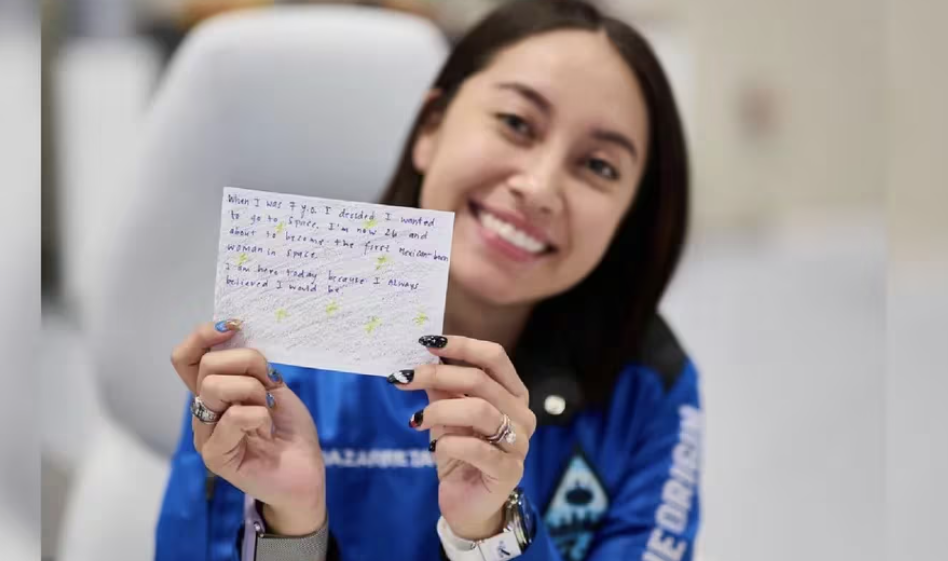 When I was 7 y.o. I decided I wanted
to go to space. I'm now 26 and
about to become the first Mexican-born
woman in space.
I am here today because I always
believed I would be.
EORIGIN